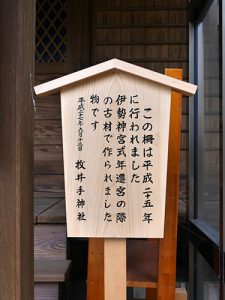 この柵は平成二十五年
に行われました
伊勢神宮式年遷宮の際
の古材で作られました
物です
平成二十七年八月十三日
牧井手神社